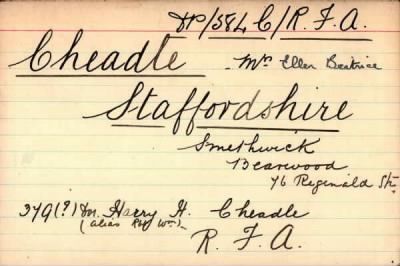 DP/584 C/R.F.A.
Cheadle - Mrs Ellen Beatrice
Staffordshire
Smethwick
Bearwood
76 Reginald St.
379(?) Dr. Harry H. Cheadle
(alias Wm)
R. F. A.